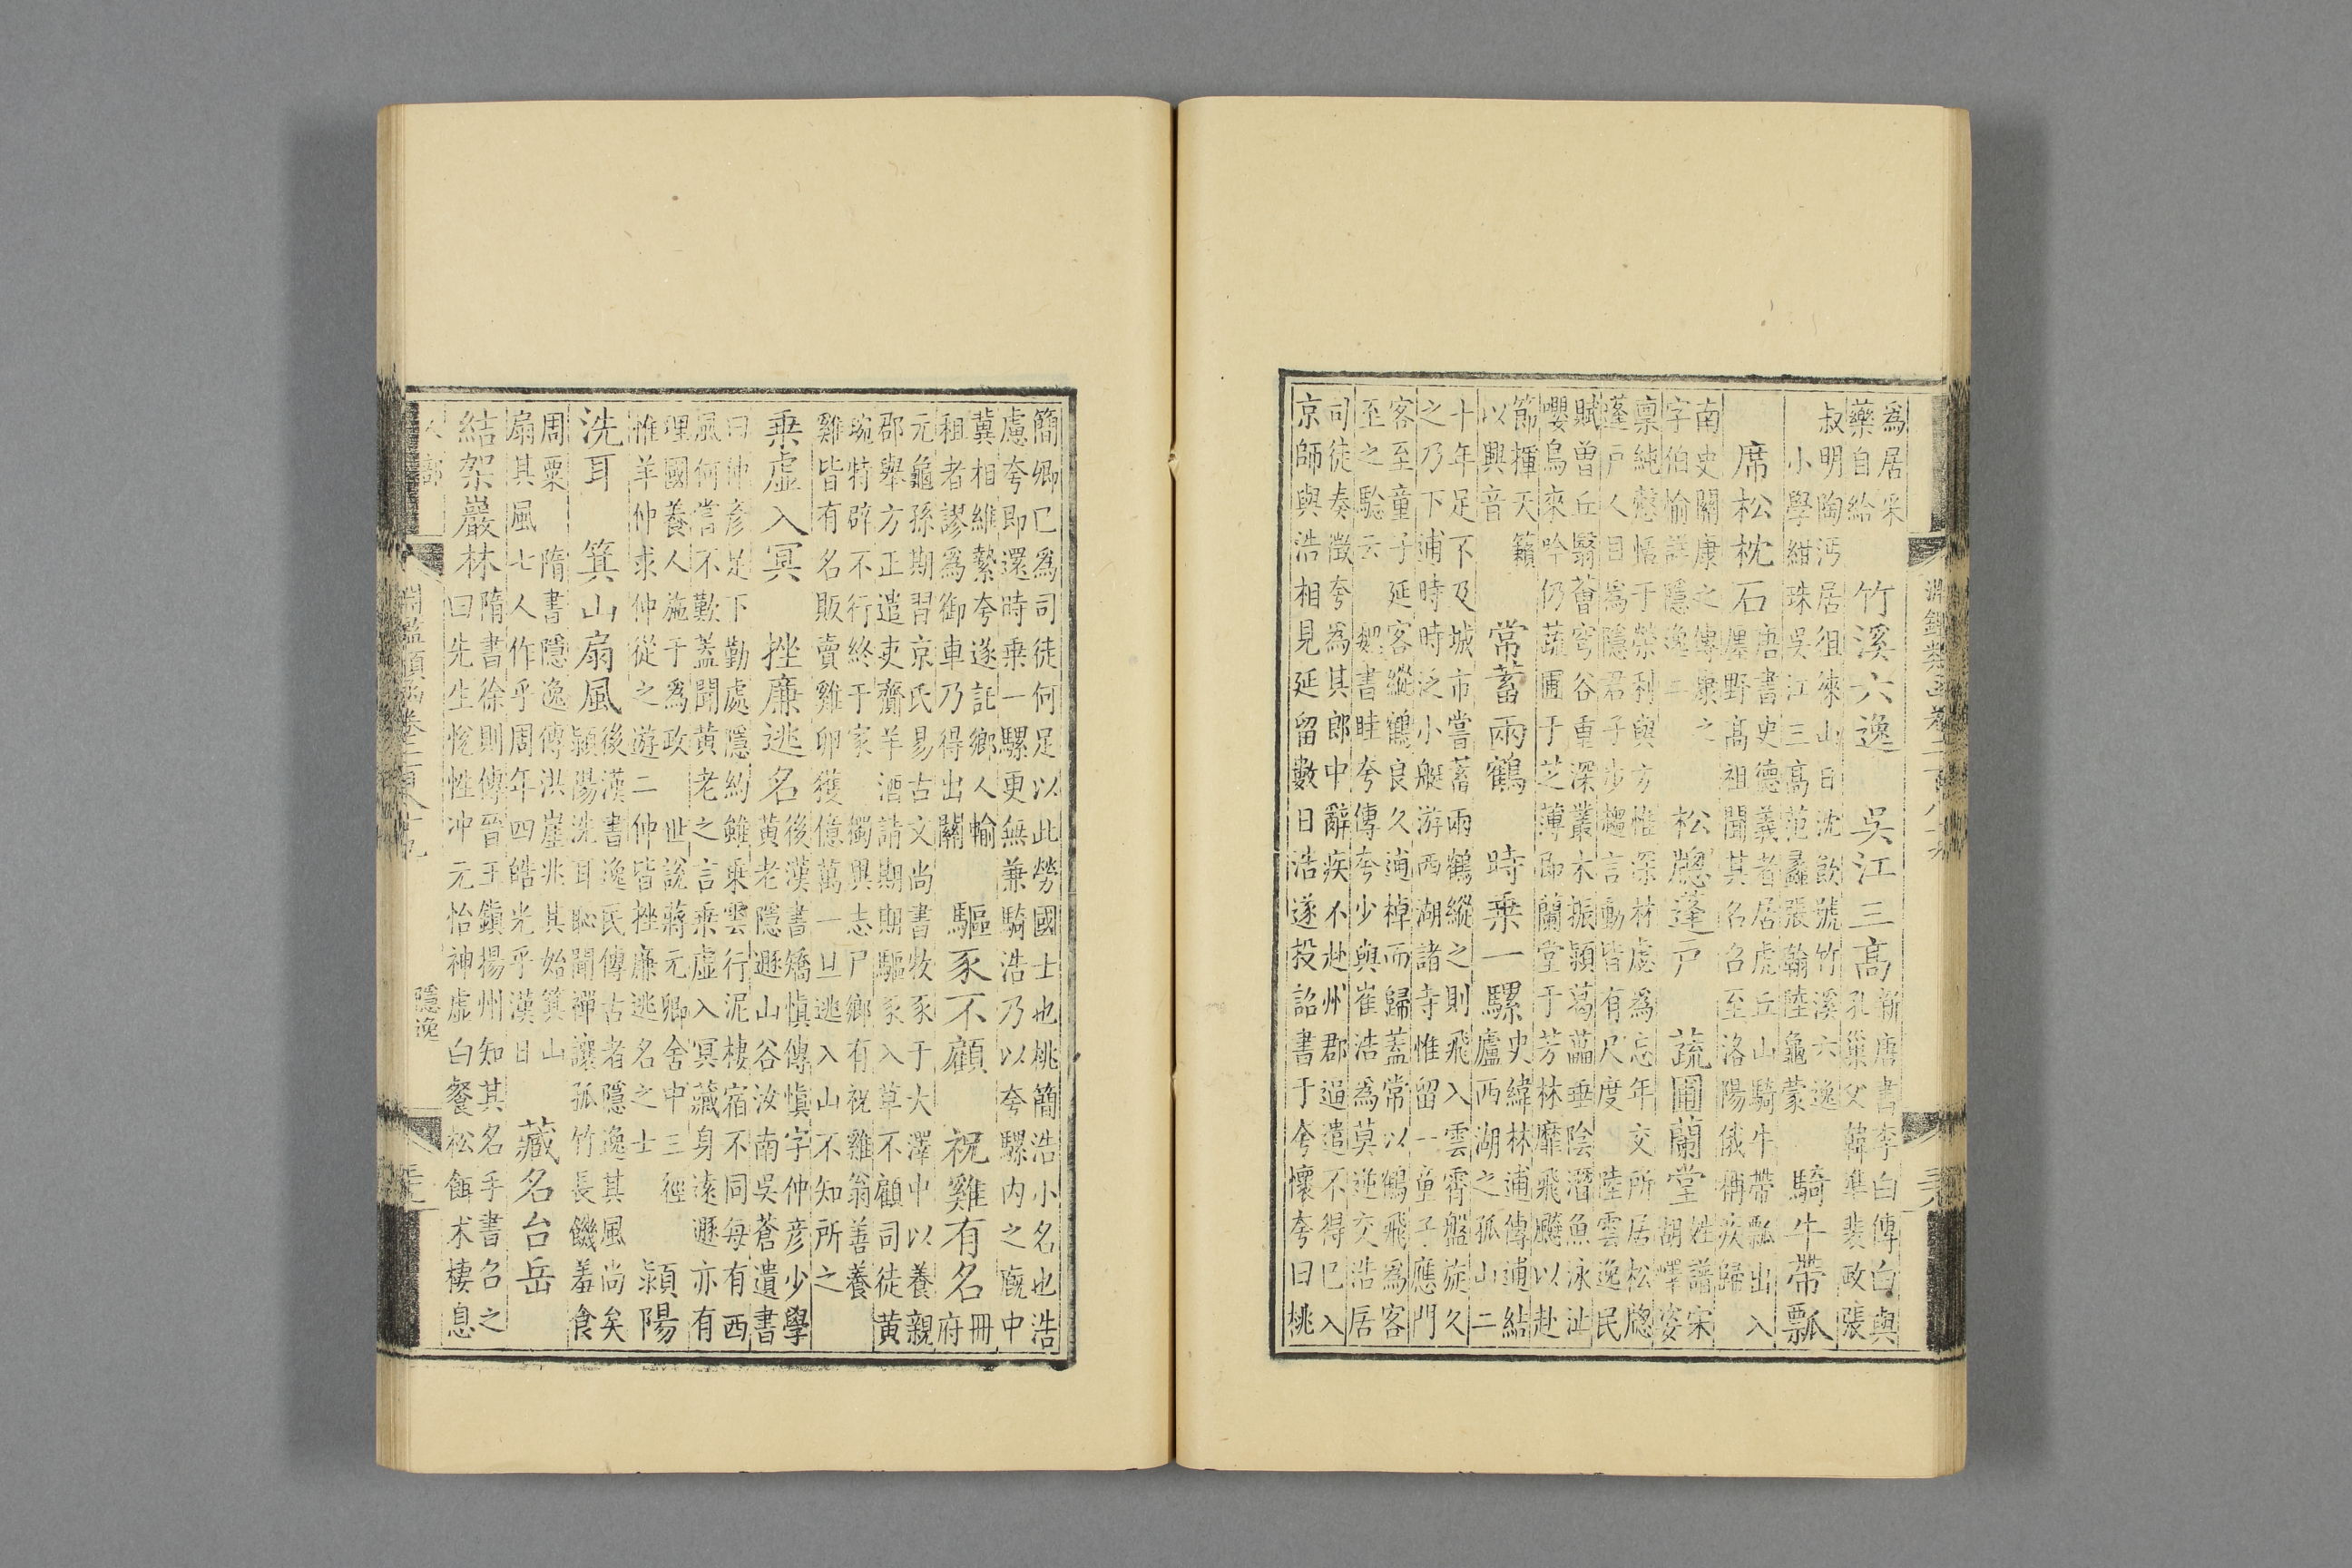 淵鑑類函卷二百八十九
為居采
藥自給
竹溪六逸 吳江三高
新唐書李白傳白與
孔巢父韓準裴政張
叔明陶沔居徂徠山日沈飲號竹溪六逸
小學紺珠吳江三高范蠡張翰陸龜蒙
騎牛帶瓢
席松枕石
唐書史德義者居虎丘山騎牛帶瓢出入
廛野高祖聞其名召至洛陽俄稱疾歸
南史關康之傳康之
字伯愉詳隱逸二
松牕蓬戶 蔬圃蘭堂
姓譜宋
胡嶧姿
稟純慤恬于榮利與方惟深林虙為忘年交所居松牕
蓬戶人目為隱君子步趨言動皆有尺度 陸雲逸民
賦曾丘翳薈穹谷重深叢木振穎葛藟垂陰潛魚泳沚
嚶鳥來吟仍蔬圃于芝薄即蘭堂于芳林靡飛飈以赴
節揮天籟
以興音
常蓄兩鶴 時乗一騾
史緯林逋傳逋結
廬西湖之孤山二
十年足不及城市嘗蓄兩鶴縱之則飛入雲霄盤旋久
之乃下逋時時泛小艇游西湖諸寺惟留一童子應門
客至童子延客縱鶴良久逋棹而歸蓋常以鶴飛為客
至之騐云 魏書眭夸傳夸少與崔浩為莫逆交浩居
司徒奏徵夸為其郎中辭疾不赴州郡逼遣不得已入
京師與浩相見延留數日浩遂投詔書于夸懷夸曰桃
簡卿已為司徒何足以此勞國士也桃簡浩小名也浩
慮夸即還時乗一騾更無兼騎浩乃以夸騾内之廐中
冀相維縶夸遂託鄉人輸
租者謬為御車乃得出關
驅豕不顧 祝雞有名
冊
府
元龜孫期習京氏易古文尚書牧豕于大澤中以養親
郡舉方正遣吏齎羊酒請期期驅豕入草不顧司徒黄
琬特辟不行終于家 獨興志尸鄉有祝雞翁善養
雞皆有名販賣雞卵獲億萬一旦逃入山不知所之
乗虛入冥 挫廉逃名
後漢書矯慎傳慎字仲彦少學
黄老隱遯山谷汝南吳蒼遺書
曰仲彦足下勤處隱約雖乗雲行泥棲宿不同每有西
風何嘗不歎蓋聞黄老之言乗虛入冥藏身遠遯亦有
理國養人施于為政 世說蔣元卿舍中三徑
惟羊仲求仲從之游二仲皆挫廉逃名之士
潁陽
洗耳 箕山扇風
後漢書逸民傳古者隱逸其風尚矣
潁陽洗耳恥聞禪讓孤竹長饑羞食
周粟 隋書隱逸傳洪崖兆其始箕山
扇其風七人作乎周年四皓光乎漢日
藏名台岳
結架巖林
隋書徐則傳晉王鎮揚州知其名手書召之
曰先生悦性冲元怡神虛白餐松餌朮棲息
人部
隱逸